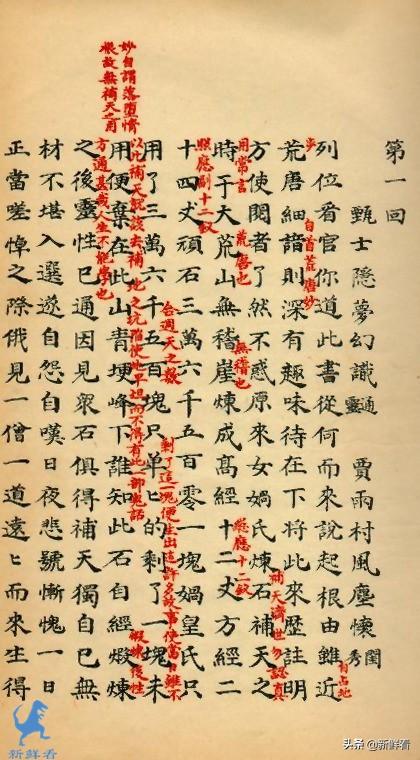 第一回
甄士隱夢幻識通靈 賈雨村風塵懷閨秀
列位看官你道此書從何而來說起根由雖近
自占地步
自首荒唐妙
荒唐細諳則深有趣味待在下將此來歷註明
方使閱者了然不惑原來女媧氏煉石補天之
補天濟世勿認真
用常言
時于大荒山無稽崖煉成高經十二丈方經二
荒唐也
無稽也
照應十二釵
照應副十二釵
十四丈頑石三萬六千五百零一塊媧皇氏只
合週天之數
用了三萬六千五百塊只单匕的剩了一塊未
剩了這一塊便生出這許多故事使當日雖不
以此補天就該去補地之坑陷使地平坦而不得有此一部鬼話
用便棄在此山青埂峰下誰知此石自經煅煉
妙自謂落墮情
根故無補天之用
煅煉後性
方通甚哉人生不能學也
之後靈性已通因見衆石俱得補天獨自已無
材不堪入選遂自怨自嘆日夜悲號慚愧一日
正當嗟悼之際俄見一僧一道遠匕而來生得
新鮮看
头条 @新鲜看